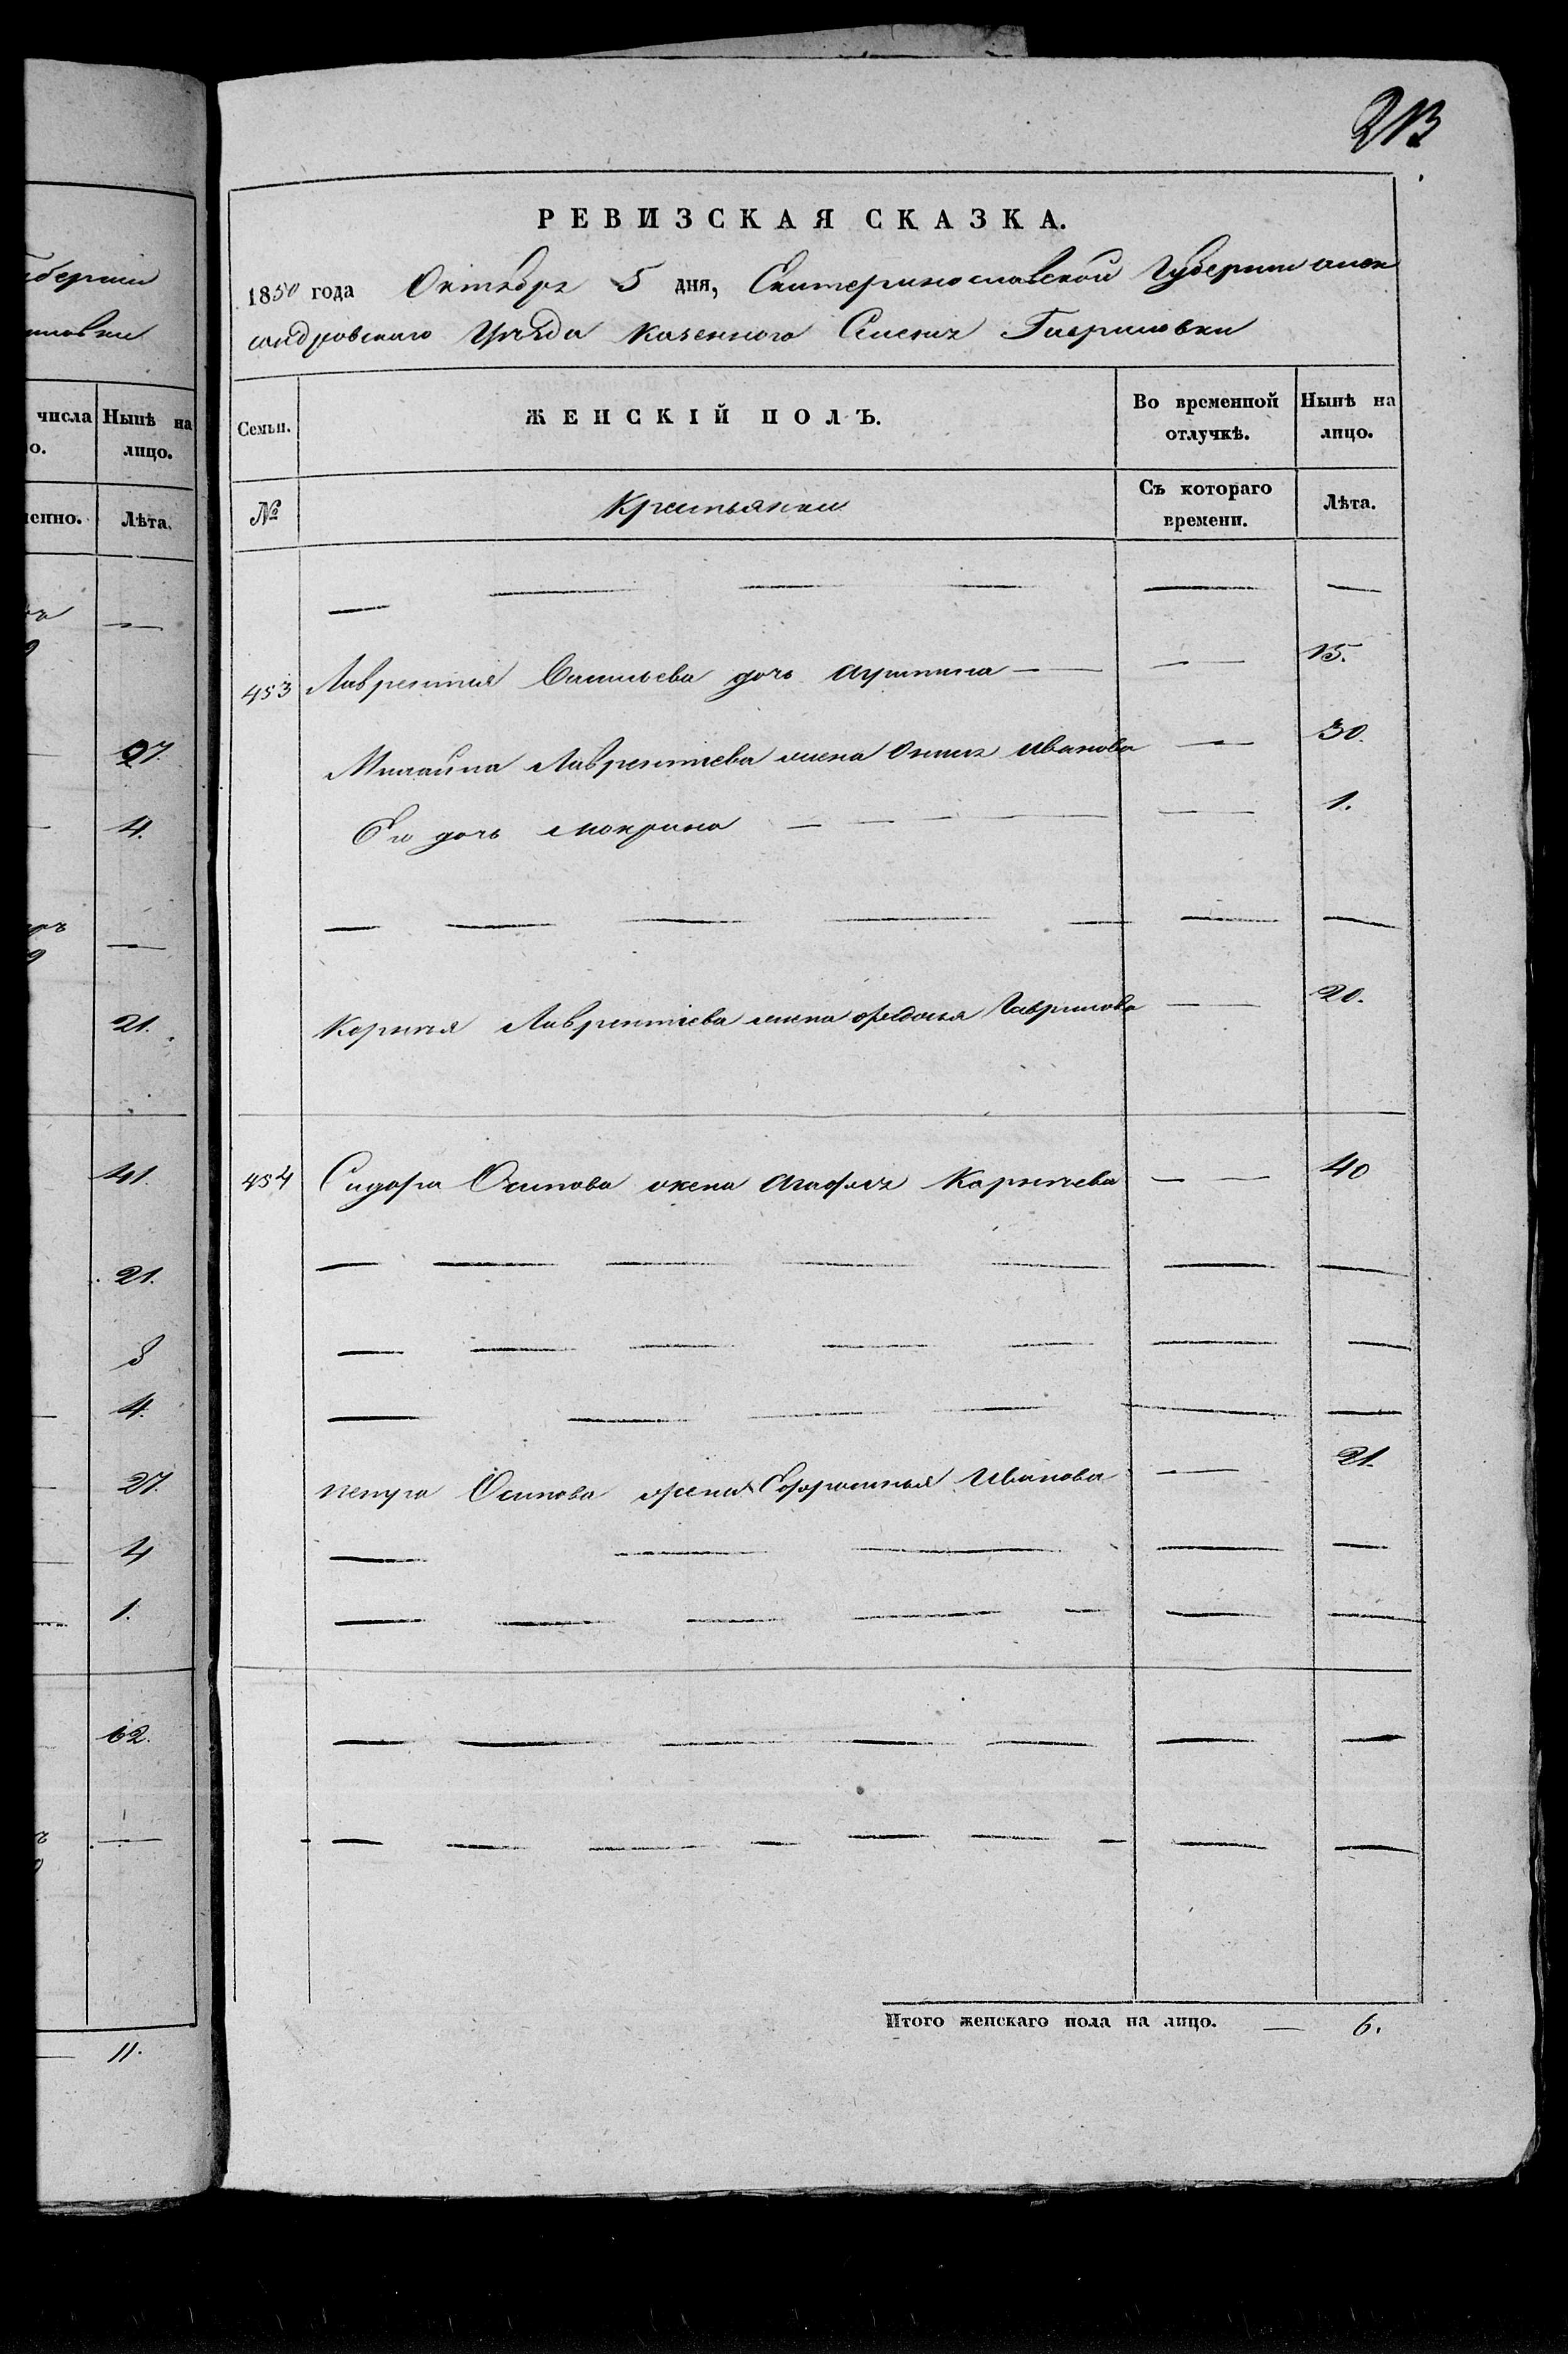 213
РЕВИЗСКАЯ СКАЗКА.
1850 года Октября 5 дня, Екатеринославской Губернии Алек
сандровскаго Уѣзда казенного Селения Гавриловки
Семьи.
ЖЕНСКІЙ ПОЛЪ.
Во временной отлучкѣ.
Нынѣ на лицо.
№
Крестьянки
Съ котораго времени.
Лѣта.
453 Лаврентия Васильева дочь 15.
Михайла Лаврентиева жена Иванова 30.
Его дочь Мокрина 1.
Корния Лаврентиева жена Федосья Гаврилова 20.
454 Сидора Осипова жена Агафия Корниева 40
Петра Осипова жена Евфросинья Иванова 21.
Итого женскаго пола на лицо. 6.
числа
Нынѣ на
о.
лицо.
Лѣта.
27.
4.
21.
41.
21.
8
4.
27.
4
1.
62.
11.